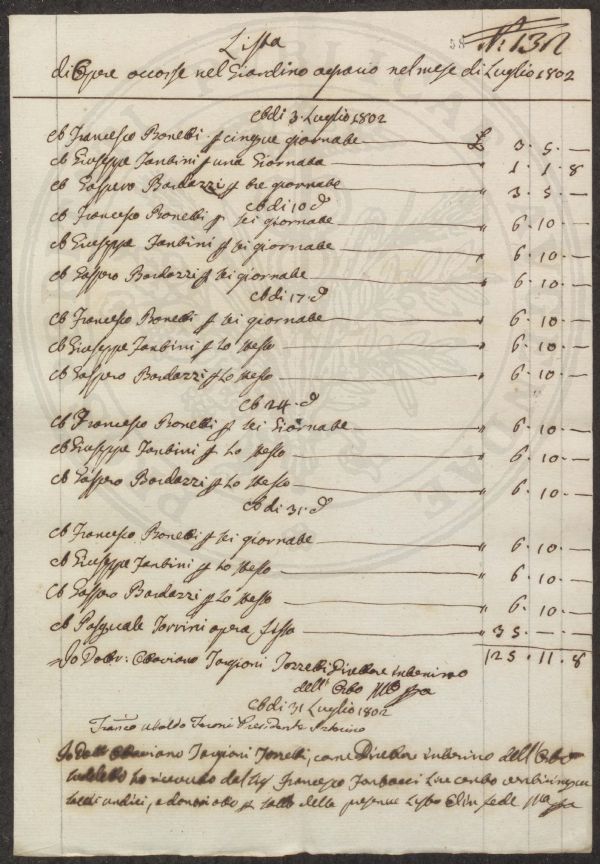 58 N: 132
Lista
di Opere occorse nel Giardino agrario nel mese di Luglio 1802
Adi 3. Luglio 1802
A Francesco Bonelli p cinque giornate £ 3. 5. —
A Giuseppe Tantini p una Giornata " 1. 1. 8
A Gaspero Bardazzi p tre giornate " 3. 5. —
Adi 10 d
A Francesco Bonelli p sei giornate " 6. 10. —
A Giuseppe Tantini p sei giornate " 6. 10. —
A Gaspero Bardazzi p sei giornate " 6. 10. —
Adi 17. d
A Francesco Bonelli p sei giornate " 6. 10. —
A Giuseppe Tantini p Lo stesso " 6. 10. —
A Gaspero Bardazzi p Lo stesso " 6. 10. —
A 24. d
A Francesco Bonelli p sei Giornate " 6. 10. —
A Giuseppe Tantini p Lo stesso " 6. 10. —
A Gaspero Bardazzi p Lo stesso " 6. 10. —
Adi 31. d
A Francesco Bonelli p sei giornate " 6. 10. —
A Giuseppe Tantini p Lo stesso " 6. 10. —
A Gaspero Bardazzi p Lo stesso " 6. 10. —
A Pasquale Torrini opera fissa " 35. — —
Io Dottr: Ottaviano Targioni Tozzetti Direttore interino 125. 11. 8
dell' Orto
Adi 31 Luglio 1802
Ubaldo Feroni Presidente
Io Dott Ottaviano Targioni Tozzetti, come Direttore interino dell' Orto
suddetto ho ricevuto dal Sig Francesco Lire cento venticinque
soldi undici, e danari otto p saldo della presente Lista E in fede